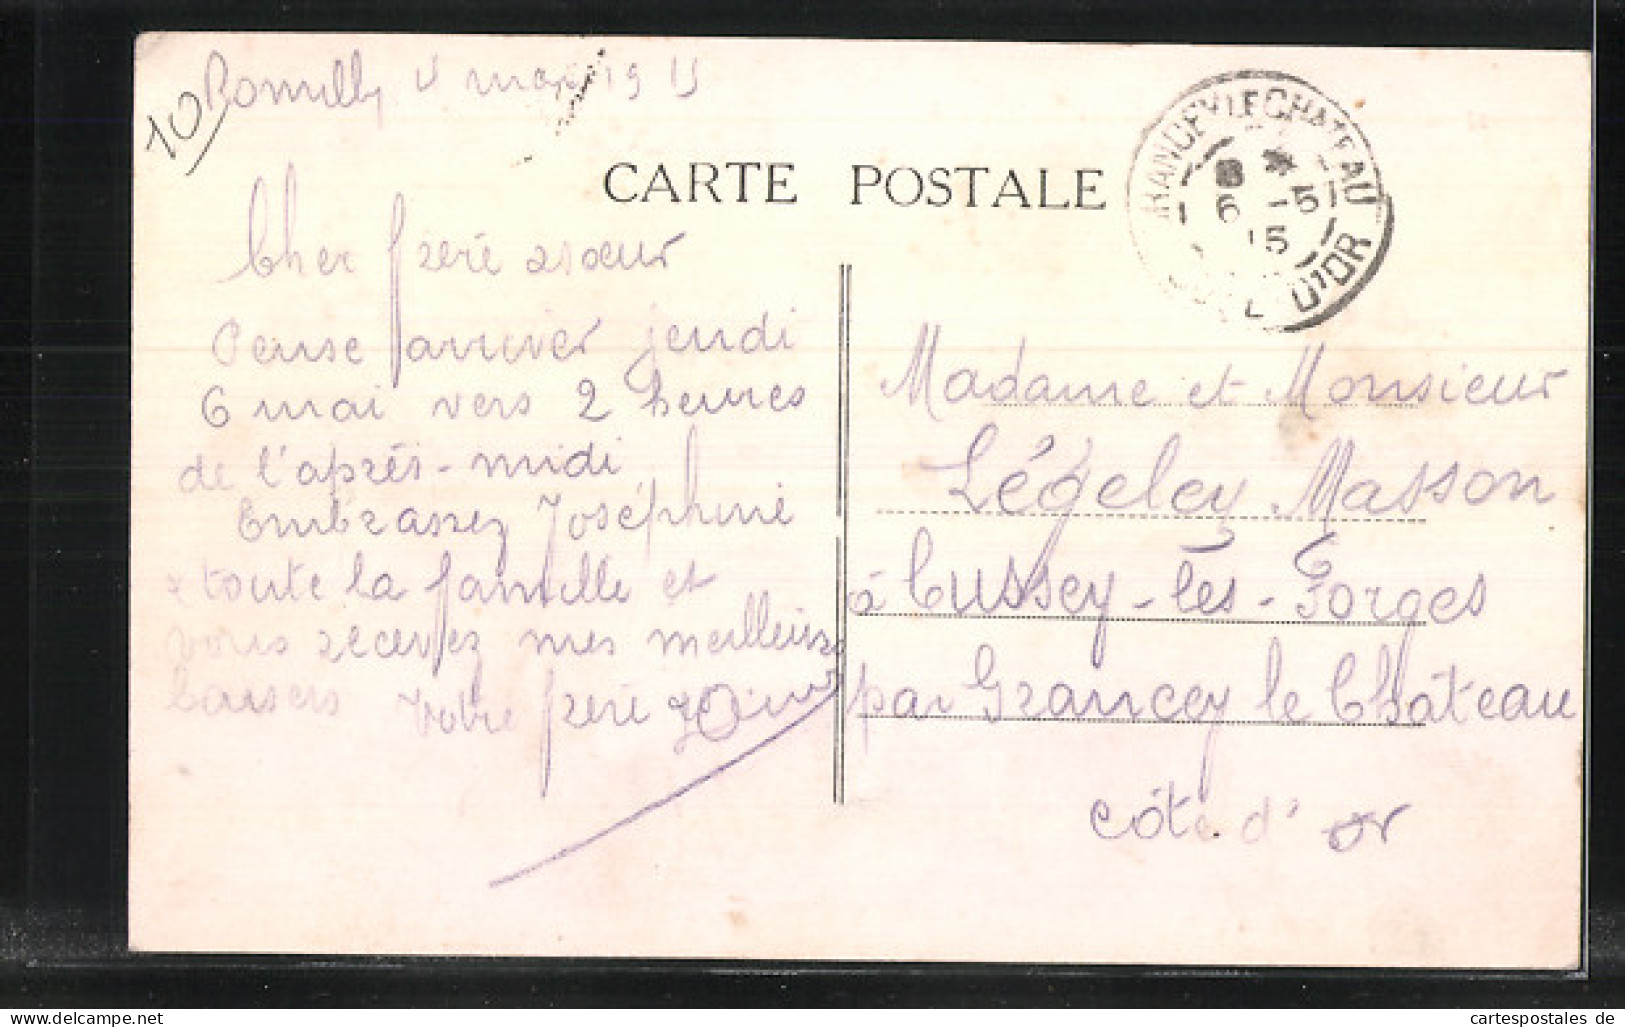 10
Romilly 4 mai 1915
CARTE POSTALE
GRANCEY LE CHATEAU
6 -5
15
CÔTE D'OR
Cher frère & sœur
Pense arriver jeudi
6 mai vers 2 heures
de l'après-midi
Embrassez Joséphine
& toute la famille et
vous recevez mes meilleurs
baisers Votre frère
Madame et Monsieur
Légeley Masson
à Cussey-les-Forges
par Grancey le Château
Côte d'or
cartespostales de